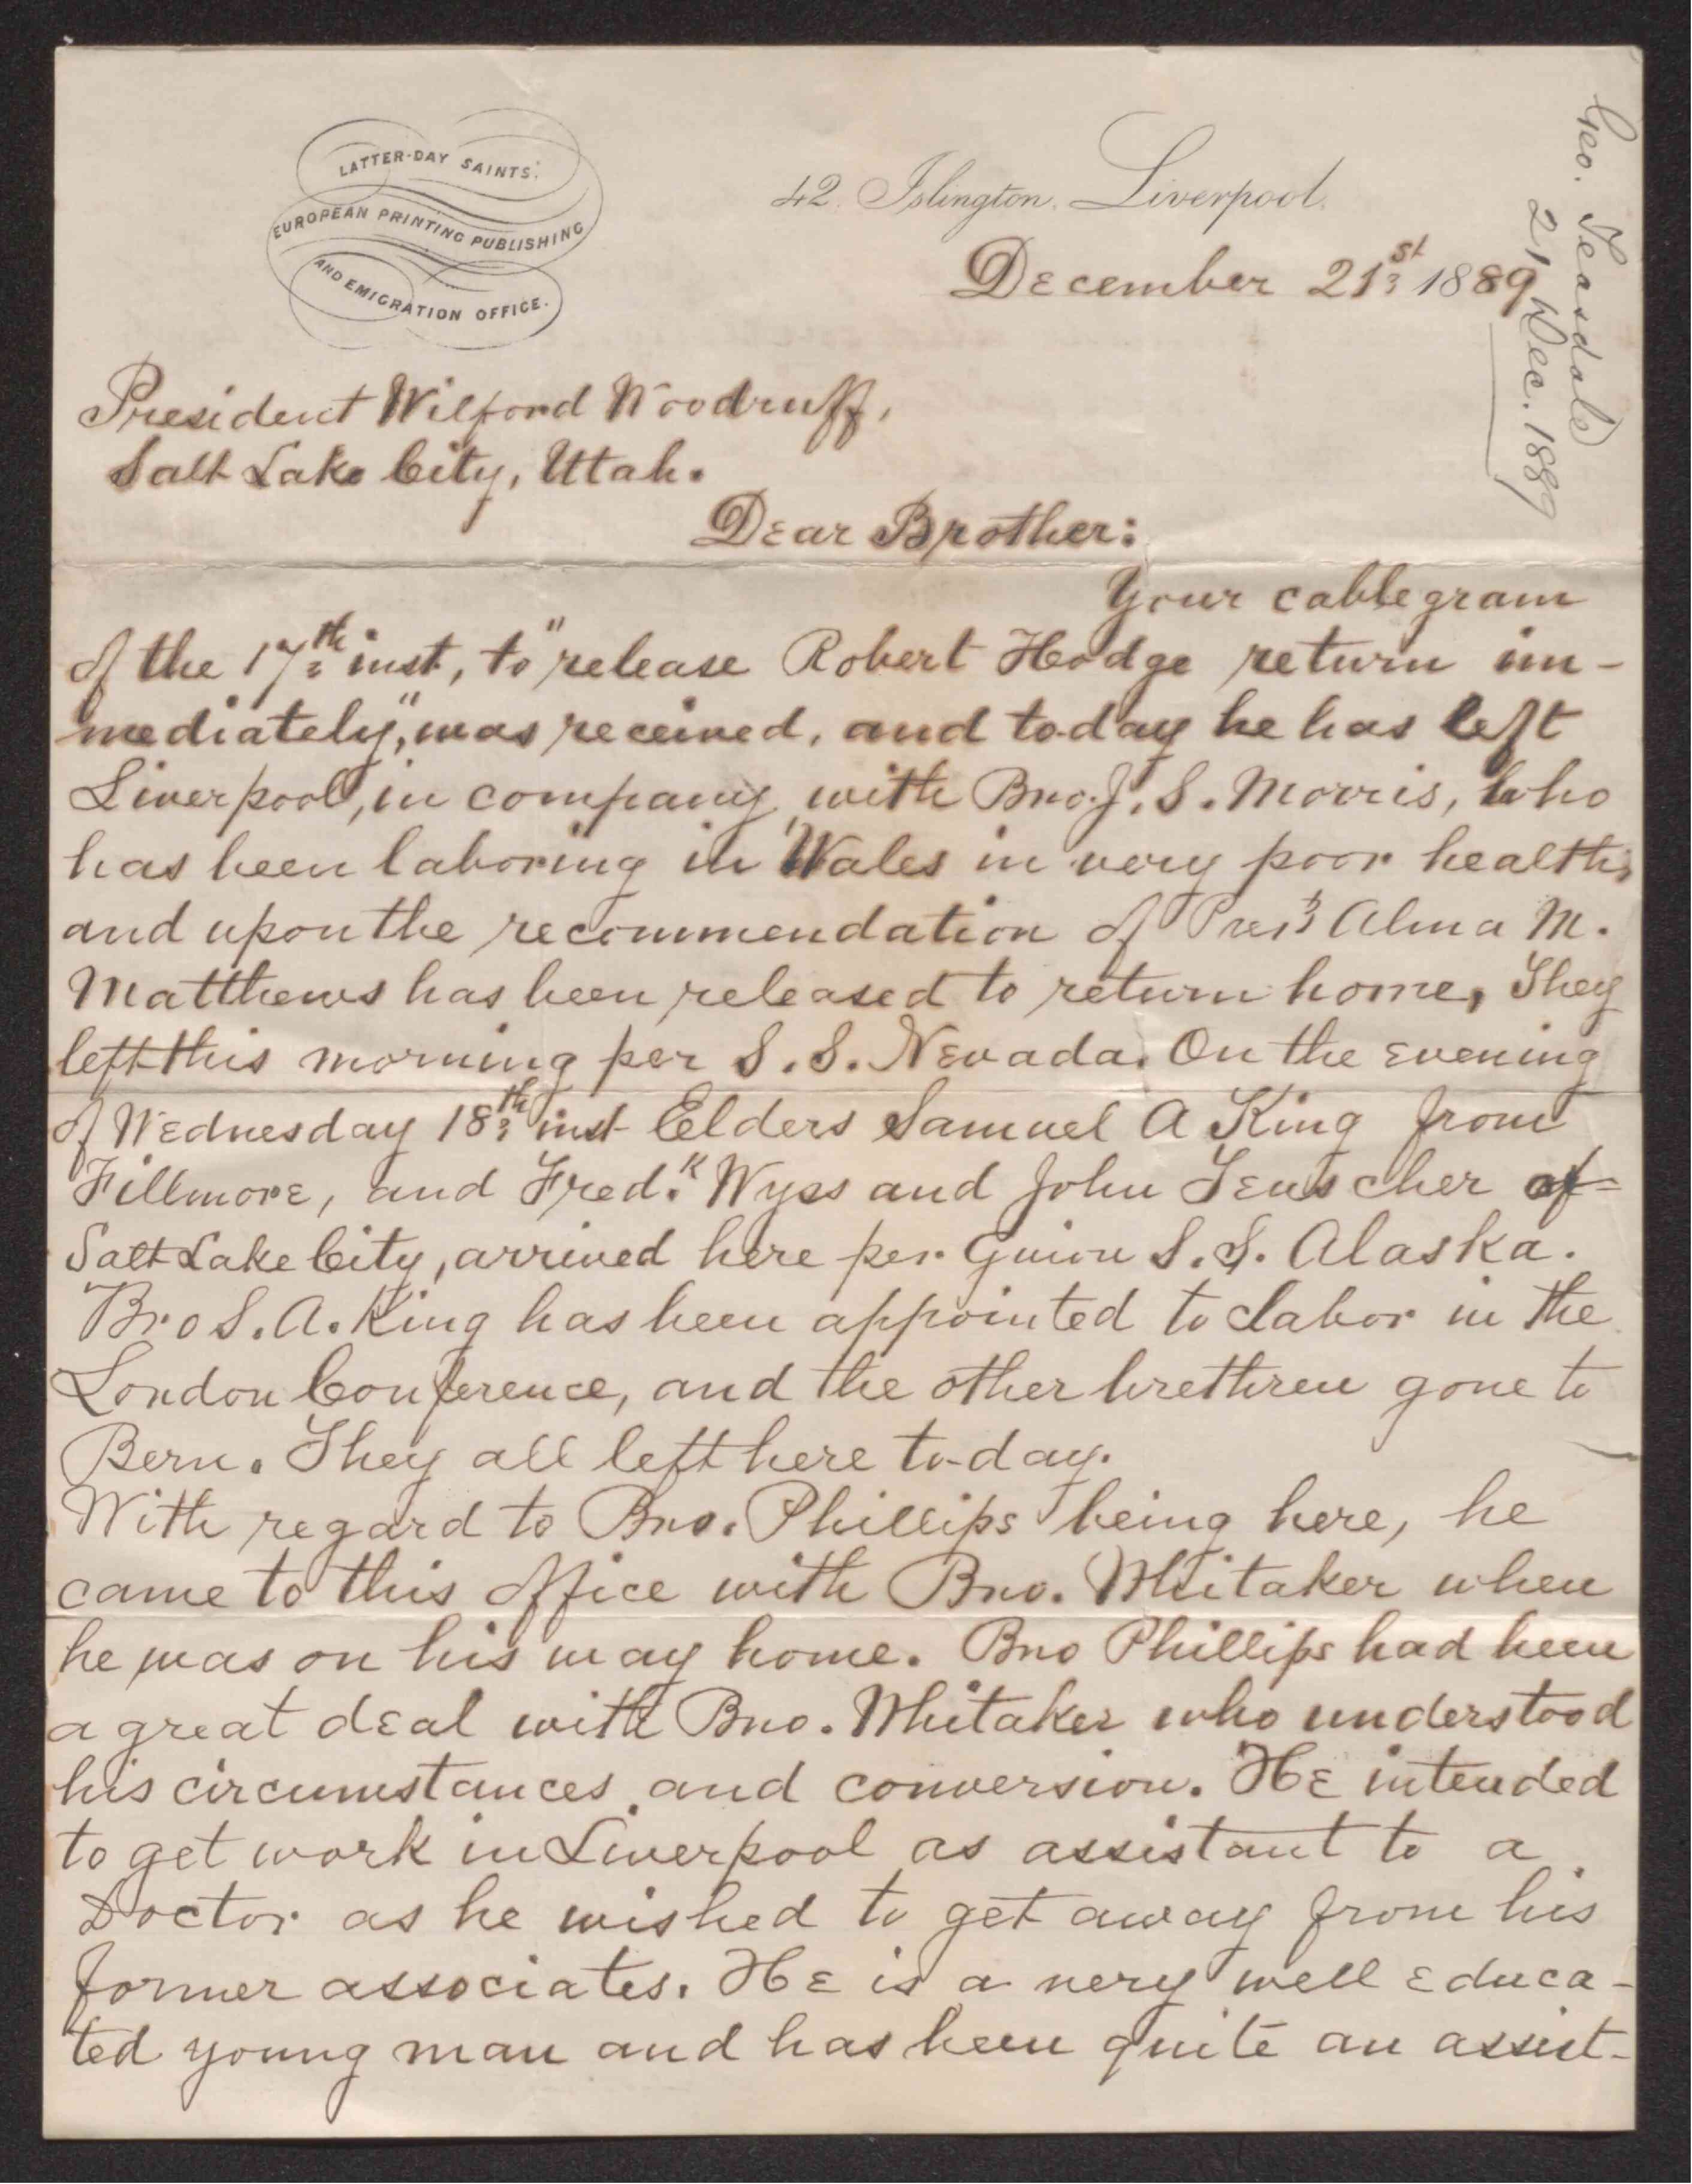 LATTER-DAY SAINTS'
EUROPEAN PRINTING PUBLISHING
AND EMIGRATION OFFICE.
42. Islington. Liverpool.
December 21st 1889
Geo. Teasdale
21 Dec. 1889
President Wilford Woodruff,
Salt Lake City, Utah.
Dear Brother:
Your cablegram
of the 17th inst, to "release Robert Hodge return im-
mediately," was received, and to-day he has left
Liverpool, in company with Bro. J. S. Morris, who
has been laboring in Wales in very poor health,
and upon the recommendation of Prest Alma M.
Matthews has been released to return home, They
left this morning per S. S. Nevada. On the evening
of Wednesday 18th inst Elders Samuel A King from
Fillmore, and Fred.k Wyss and John Teuscher of
Salt Lake City, arrived here per Guion S. S. Alaska.
Bro S. A. King has been appointed to labor in the
London Conference, and the other brethren gone to
Bern. They all left here to-day.
With regard to Bro. Phillips being here, he
came to this office with Bro. Whitaker when
he was on his way home. Bro Phillips had been
a great deal with Bro. Whitaker who understood
his circumstances and conversion. He intended
to get work in Liverpool as assistant to a
Doctor as he wished to get away from his
former associates. He is a very well educa-
ted young man and has been quite an assist-